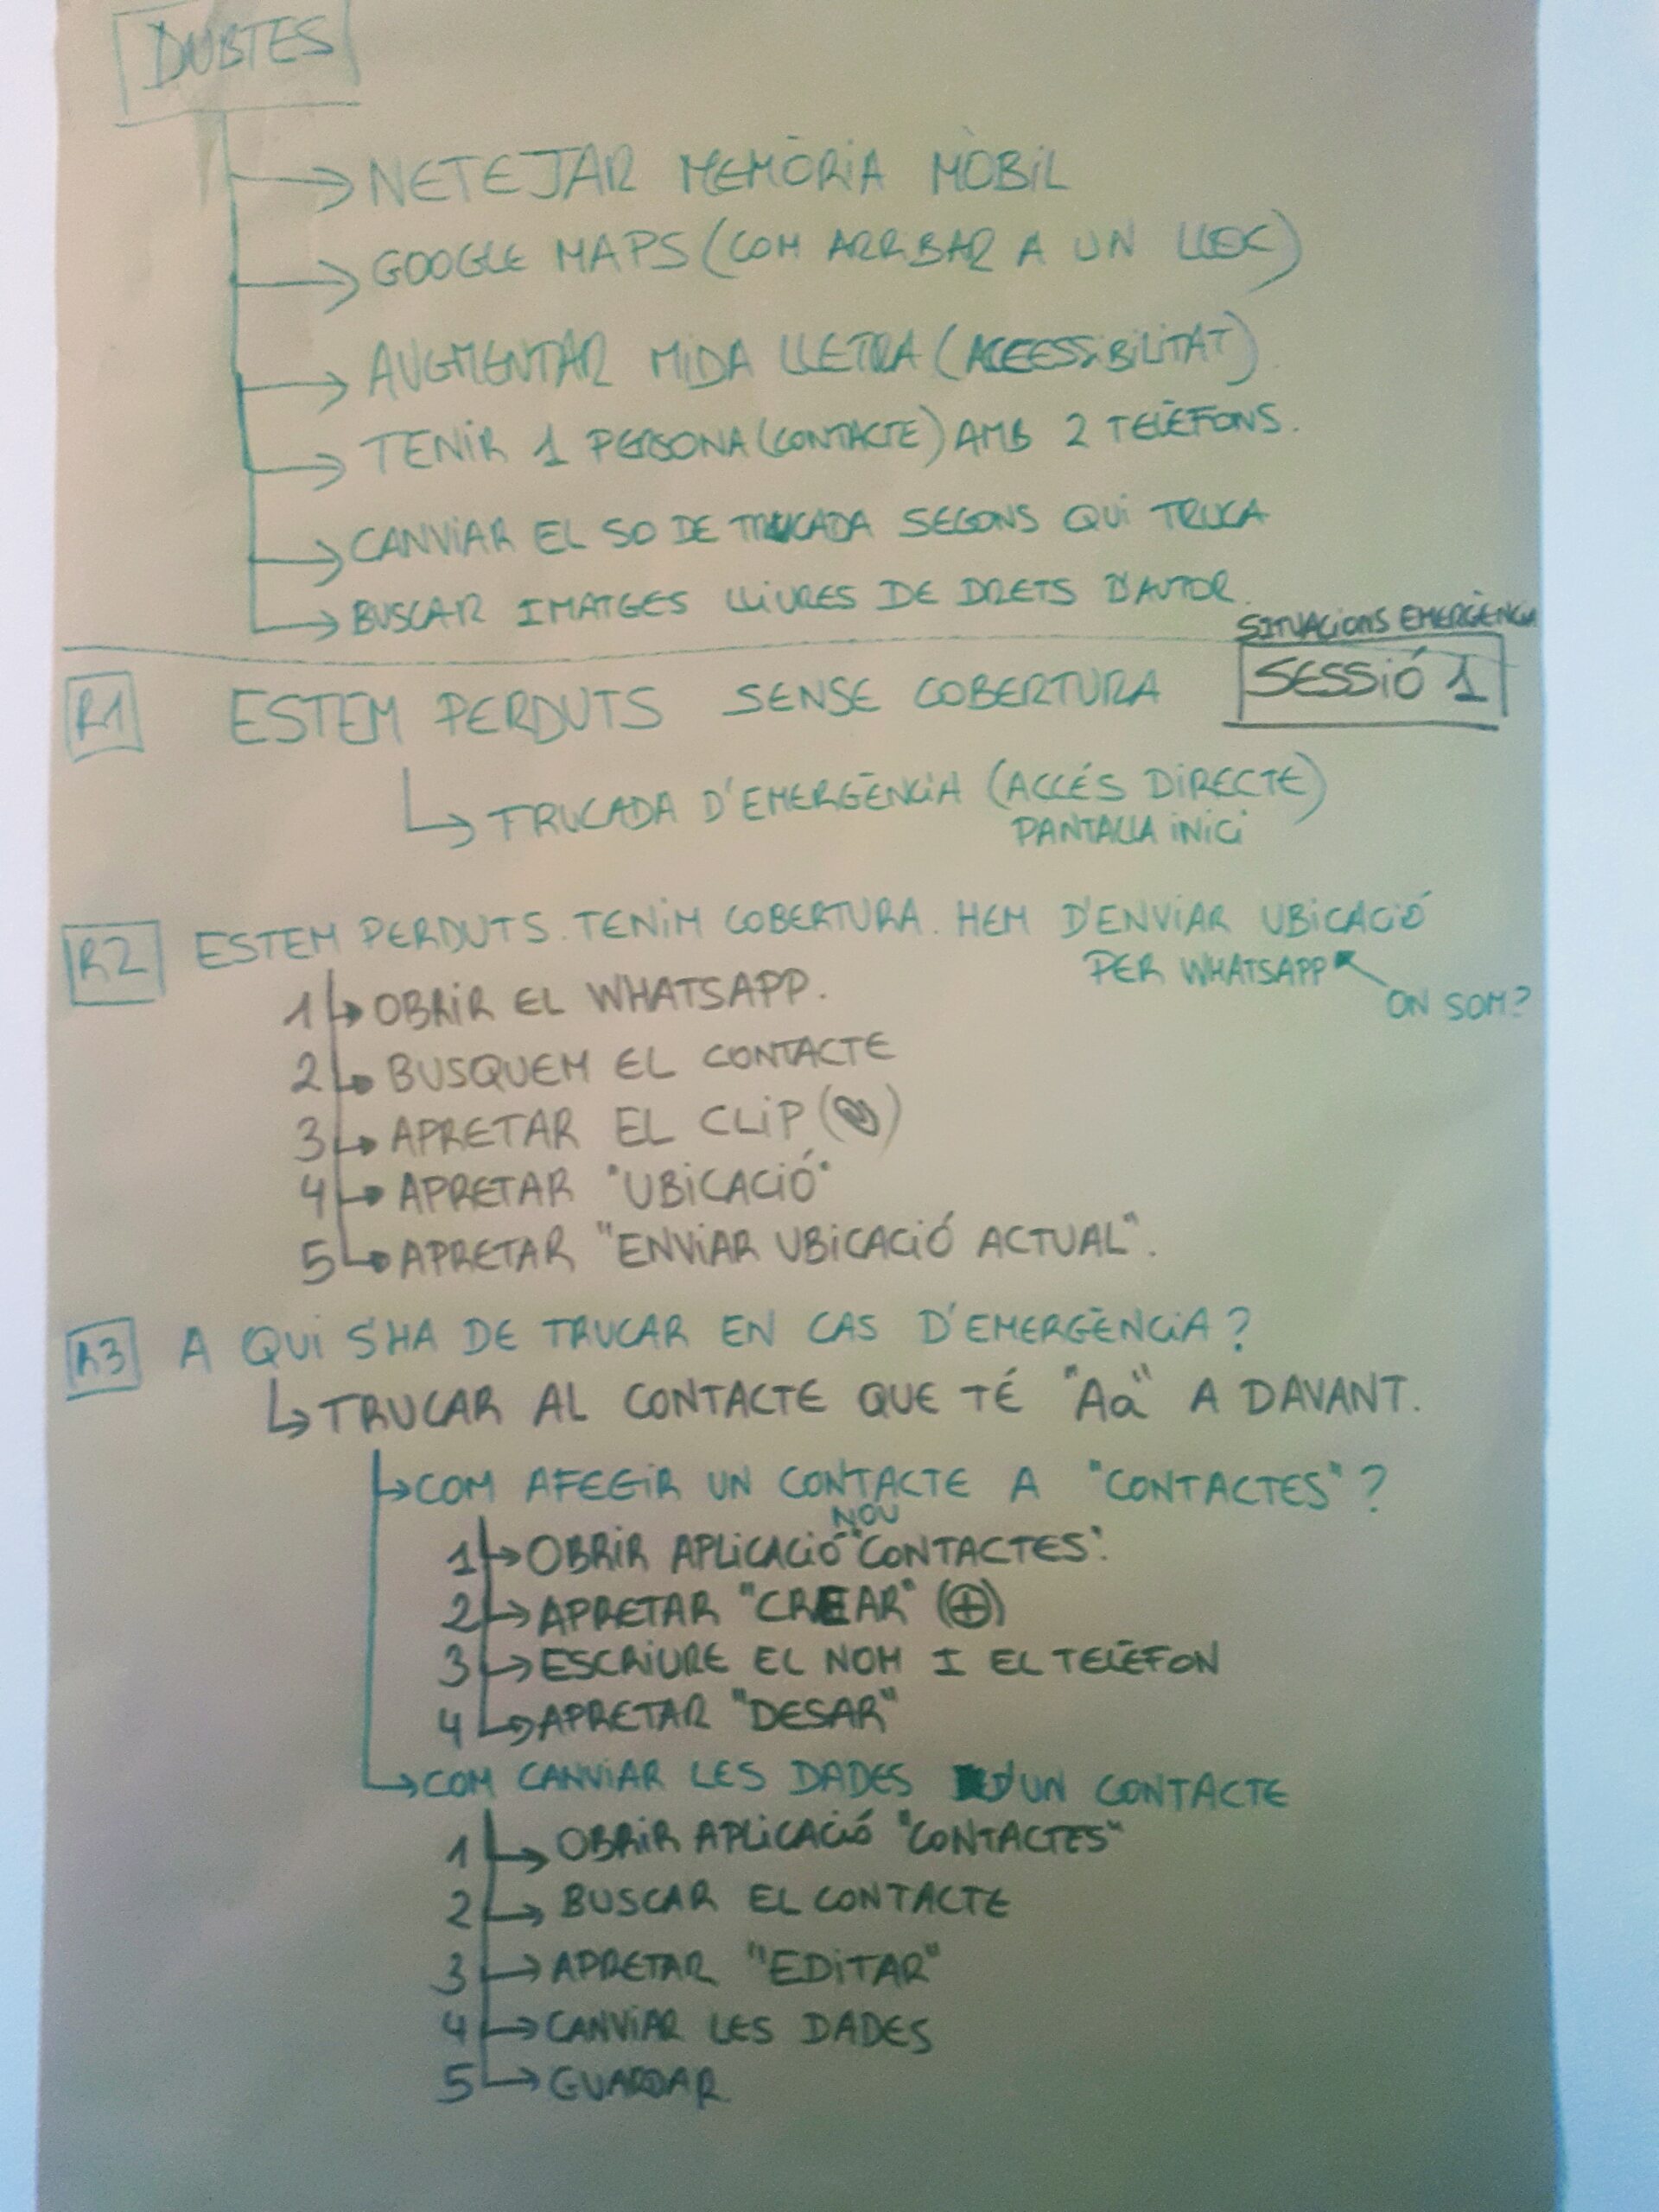 DUBTES
→ NETEJAR MEMÒRIA MÒBIL
→ GOOGLE MAPS (COM ARRIBAR A UN LLOC)
→ AUGMENTAR MIDA LLETRA (ACCESSIBILITAT).
→ TENIR 1 PERSONA (CONTACTE) AMB 2 TELÈFONS.
→ CANVIAR EL SO DE TRUCADA SEGONS QUI TRUCA
→ BUSCAR IMATGES LLIURES DE DRETS D'AUTOR.
SITUACIONS EMERGÈNCIA
SESSIÓ 1
R1 ESTEM PERDUTS SENSE COBERTURA
↳ TRUCADA D'EMERGÈNCIA (ACCÉS DIRECTE)
PANTALLA INICI
R2 ESTEM PERDUTS. TENIM COBERTURA. HEM D'ENVIAR UBICACIÓ
PER WHATSAPP
ON SOM?
1 ↳ OBRIR EL WHATSAPP.
2 ↳ BUSQUEM EL CONTACTE
3 ↳ APRETAR EL CLIP (📎)
4 ↳ APRETAR "UBICACIÓ"
5 ↳ APRETAR "ENVIAR UBICACIÓ ACTUAL".
R3 A QUI S'HA DE TRUCAR EN CAS D'EMERGÈNCIA?
↳ TRUCAR AL CONTACTE QUE TÉ "Aa" A DAVANT.
↳ COM AFEGIR UN CONTACTE A "CONTACTES"?
NOU
1 → OBRIR APLICACIÓ "CONTACTES".
2 → APRETAR "CREAR" (⊕)
3 → ESCRIURE EL NOM I EL TELÈFON
4 → APRETAR "DESAR"
↳ COM CANVIAR LES DADES D'UN CONTACTE
1 → OBRIR APLICACIÓ "CONTACTES"
2 → BUSCAR EL CONTACTE
3 → APRETAR "EDITAR"
4 → CANVIAR LES DADES
5 → GUARDAR